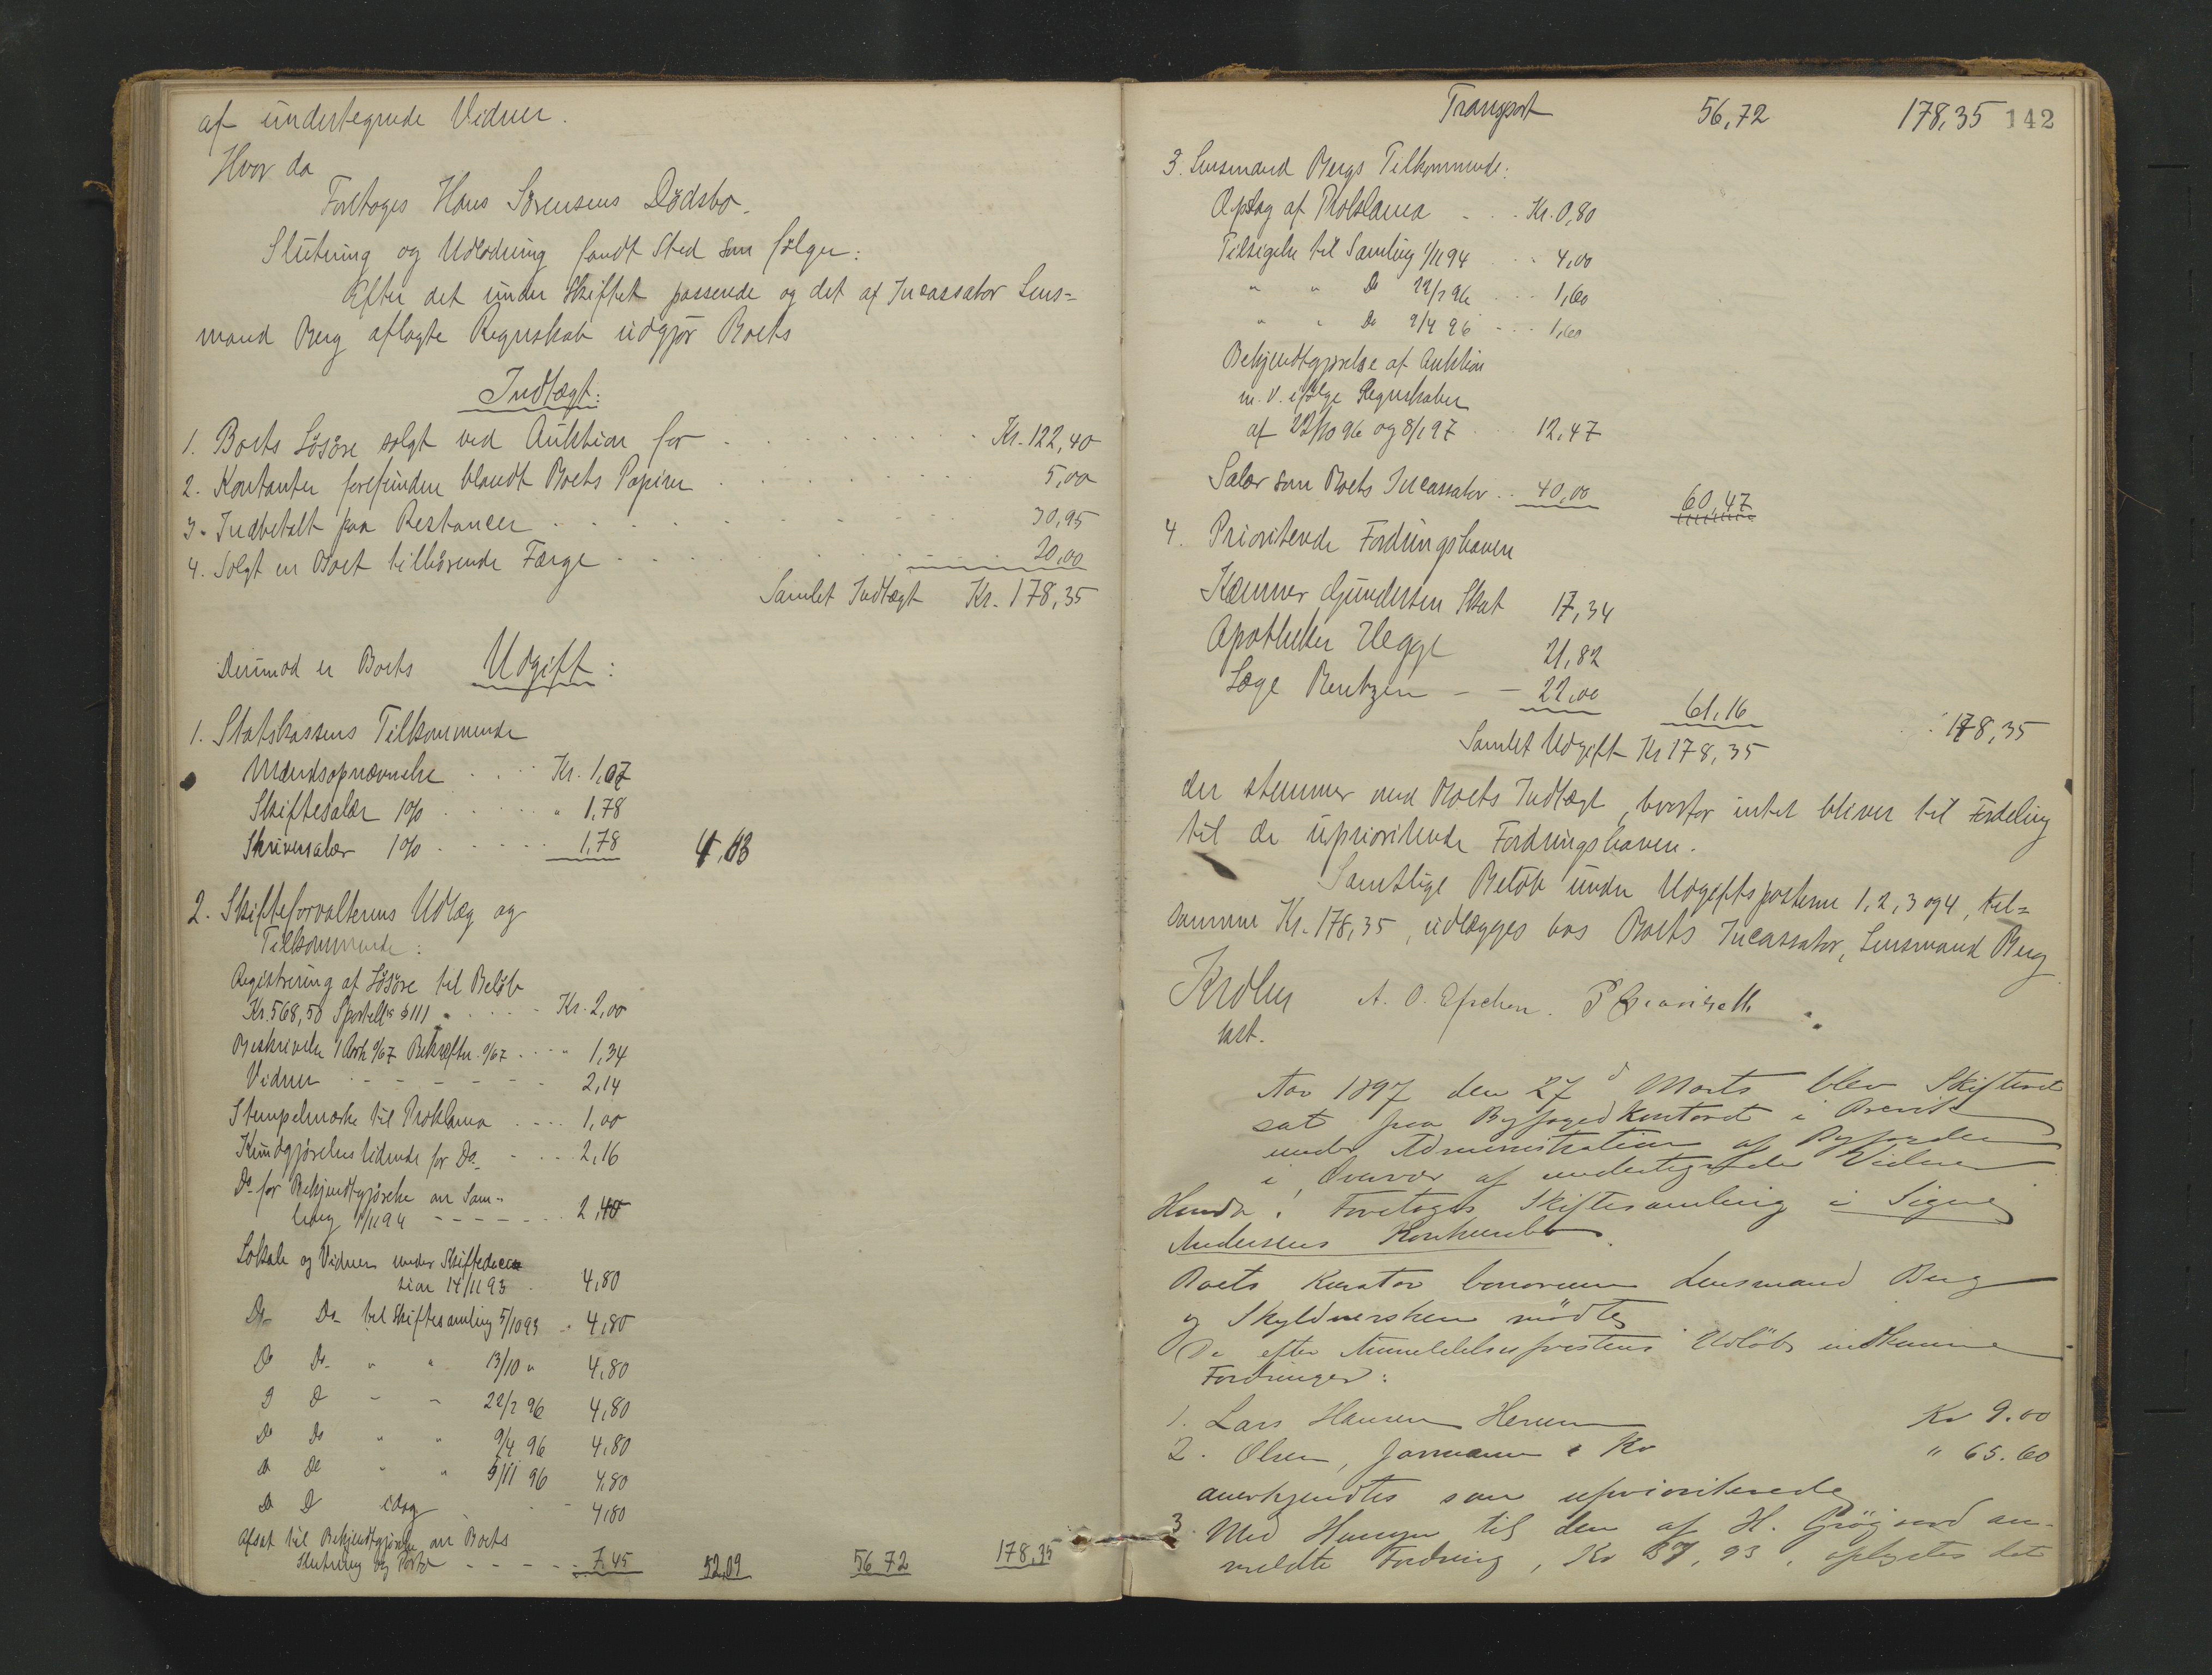 af undertegnede Vidner.
Hvor da
Foretoges Hans Sörensens Dödsbo.
Slutning og Udlodning fandt Sted som følger:
Efter det under Skiftet passerede og det af Incassator Lens=
mand Berg aflagte Regnskab udgjør Boets
Indtægt:
1. Boets Lösöre solgt ved Auktion for Kr. 122,40
2. Kontanter forefunden blandt Boets Papirer 5,00
3. Indbetalt paa Restancer 30,95
4. Solgt en Boet tilhörende Færge 20,00
Samlet Indtægt Kr. 178,35
Derimod er Boets Udgift:
1. Statskassens Tilkommende
Mændsopnævnelse Kr. 1,07
Skiftesalær 1% " 1,78
Skriversalær 1% 1,78 4,63
2. Skifteforvalterens Udlæg og
Tilkommende:
Registrering af Lösöre til Belöb
Kr. 568,50 Sportell. § 111 Kr. 2,00
Beskrivelse 1 Ark 0/67 Bekræftn. 0/67 " 1,34
Vidner 2,14
Stempelmærke til Proklama 1,00
Kundgjörelsestidende for Do 2,16
Do for Bekjendtgjörelse om Sam-
ling 1/11 94 2,40
Lokale og Vidner under Skiftedecen
tion 14/11 93 4,80
Do Do til Skiftesamling 5/10 93 4,80
Do Do " " 13/10 " 4,80
D D - - 22/2 96 4,80
Do Do " " 9/4 96 4,80
Do Do " " 9/11 96 4,80
Do D idag 4,80
Afsat til Bekjendtgjörelse om Boets
Slutning og Porto 7,45 52,09 56,72 178,35
Transport 56,72 178,35 142
3. Lensmand Bergs Tilkommende:
Opslag af Proklama Kr. 0,80
Tilsigelse til Samling 1/11 94 4,00
" " Do 22/2 96 1,60
" " Do 9/4 96 1,60
Bekjendtgjørelse af Auktion
m. v. ifölge Regnskaber
af 22/10 96 og 8/1 97 12,47
Salær som Boets Incassator 40,00 60,47
4. Prioriterede Fordringshavere
Kæmner Gundersen Skat 17,34
Apotheker Hegge 21,82
Læge Bentzen 22,00 61,16
Samlet Udgift Kr 178,35 178,35
der stemmer med Boets Indtægt, hvorfor intet bliver til Fordeling
til de uprioriterede Fordringshavere.
Samtlige Belöb under Udgiftsposterne 1, 2, 3 og 4, til=
sammen Kr. 178,35, udlægges hos Boets Incassator, Lensmand Berg
A. O.
Aar 1897 den 27d Marts blev Skifteret
sat paa Byfogedkontoret i Brevik
under Administration af Byfogden
i Overvær af undertegnede Vidner
Hvorda: Foretoges Skiftesamling i Signe
Andersens Konkursbo.
Boets Kurator bonorum Lensmand Berg
og Skyldnersken mödte.
De efter Anmeldelsesfristens Udlöb indkomne
Fordringer:
1. Lars Hansen Kr 9.00
2. Olsen, Jormann & Ko " 65.60
anerkjendtes som uprioriterede
3. Med Hensyn til den af H. an-
meldte Fordring, Kr 37,93, oplystes det